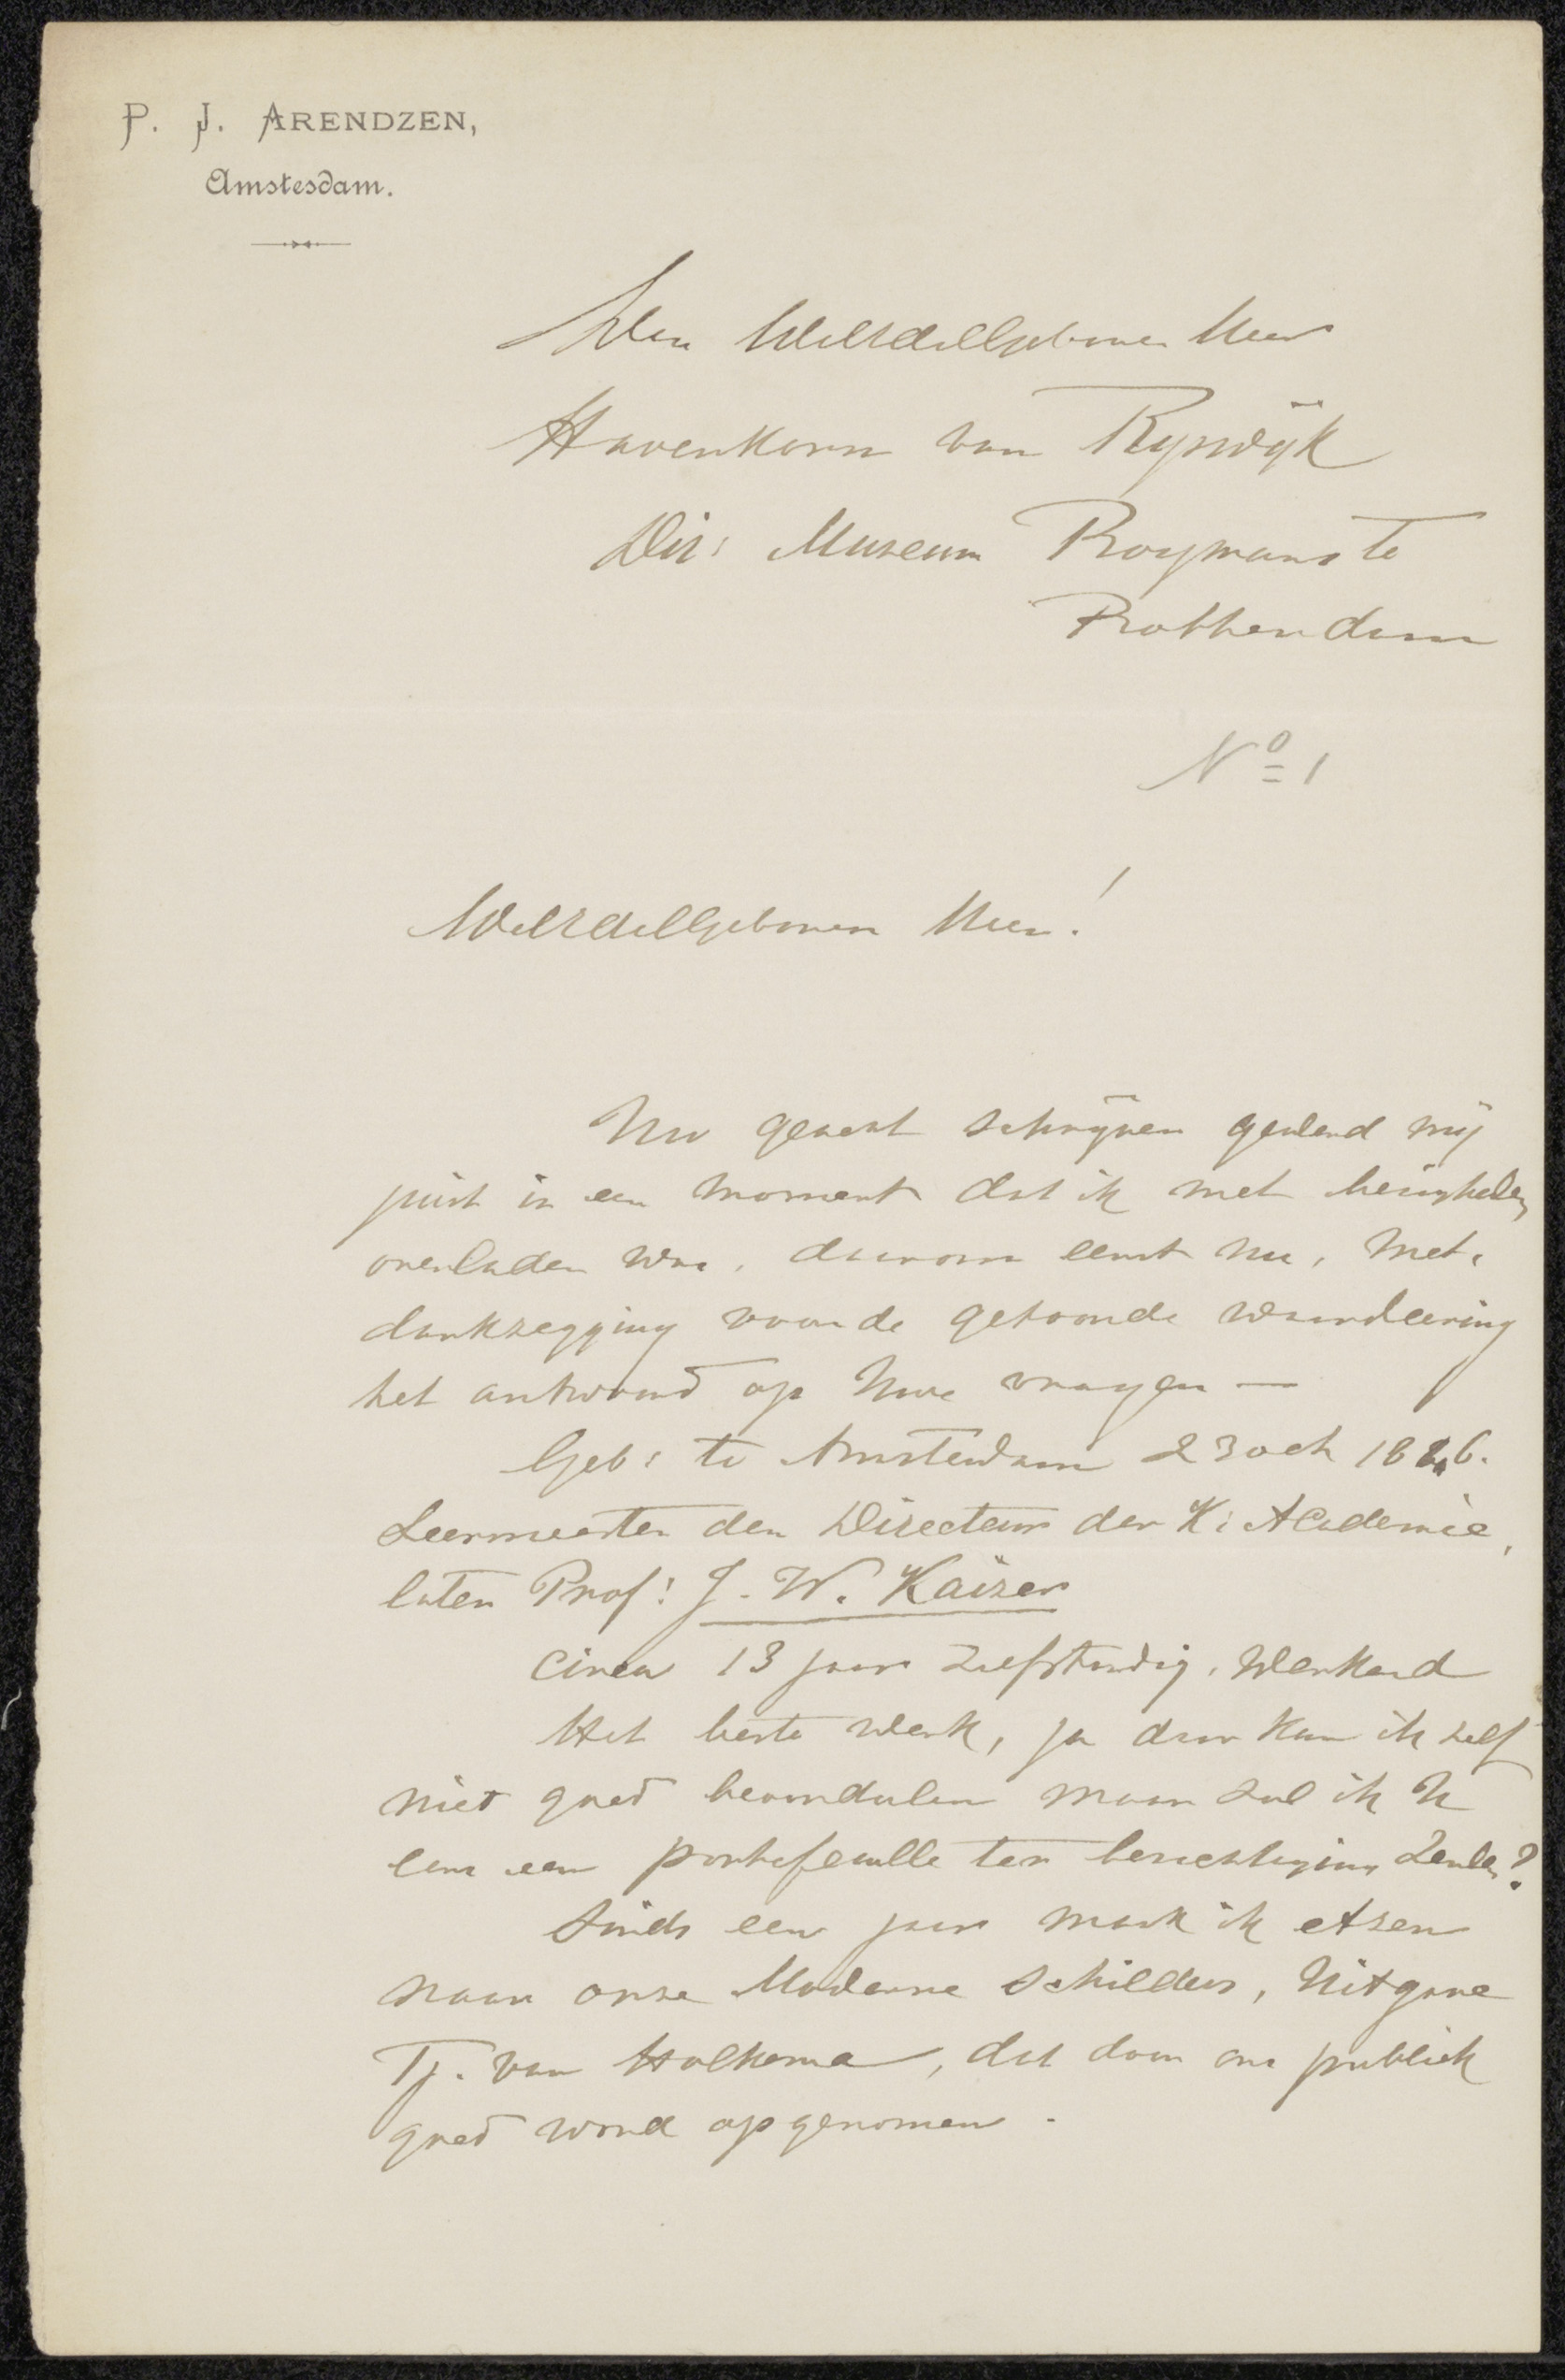 P. J. ARENDZEN,
Amsterdam.
Den WelEdelGeboren Heer
Haverkorn van Rijswijk
Dir: Museum Boymans te
Rotterdam
No 1
WelEdelGeboren Heer!
Uw geacht schrijven gewerd mij
juist in een moment dat ik met bezigheden
overladen was, daarom eerst nu, met
dankzegging voor de getoonde waardeering
het antwoord op Uwe vragen —
Geb: te Amsterdam 23 oct 1846.
Leermeester den Directeur der K: Academie,
later Prof: J. W. Kaiser
circa 13 jaar zelfstandig werkend
Het beste werk, ja daar kan ik zelf
niet goed beoordeelen maar zal ik U
eens een portefeuille ter bezichtiging zenden?
Sinds een jaar maak ik etsen
naar onze Moderne Schilders, Uitgave
Tj. van Holkema, dat door ons publiek
goed word opgenomen.